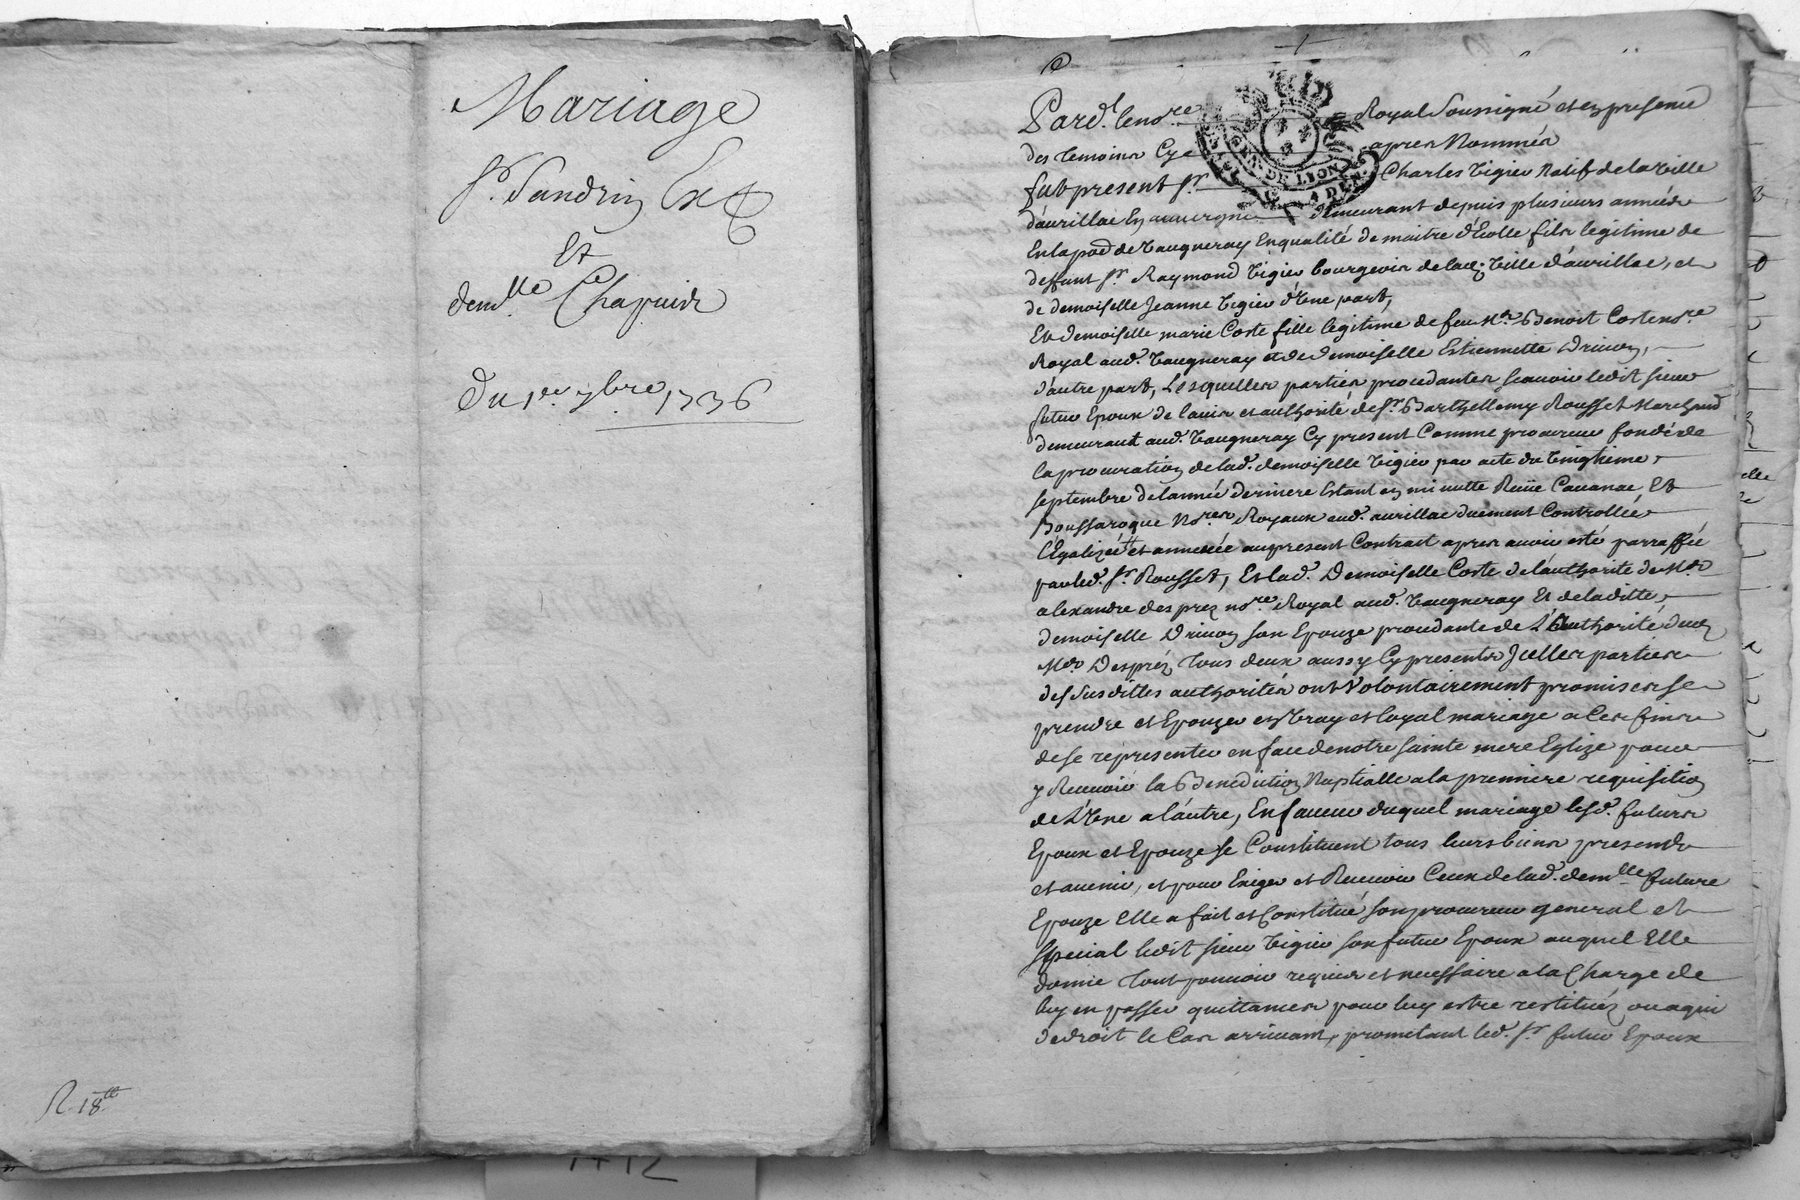 Mariage
Sr. Sandrin
Et
demlle Chapuis
Du 1er 7bre 1736
R. 18tt
Pard.t le nore Royal Soussigné et en presence
des temoins Cy apres Nommés
fut present sr Charles Vigier Natif de la Ville
d'aurillac En auvergne demeurant depuis plusieurs années
En la parde de Vaugneray En qualité de maitre d'Ecolle fils legitime de
deffunt sr. Raymond Vigier bourgeois de lad. Ville d'aurillac, et
de demoiselle Jeanne Vigier d'Vne part,
Et demoiselle marie Coste fille legitime de feu Mr. Benoit Coste nore
Royal aud. Vaugneray et de demoiselle Estiennette
d'autre part, Lesquelles parties procedantes scauoir ledit sieur
futur Epoux de l'auis et authorité de sr. Barthellemy Rousset Marchand
demeurant aud. Vaugneray Cy present Comme procureur fondé de
la procuration de lad. demoiselle Vigier par acte du Vingtieme
septembre de l'année derniere Estant en minutte Reüe Cauanac Et
Boussaroque Nores Royaux aud. aurillac duement Controllée
Légalizée et annexée au present Contrait apres auoir esté parraffée
par led. sr. Rousset, Et lad. Demoiselle Coste de l'authorité de Me
alexandre desprez nore Royal aud. Vaugneray Et de laditte
demoiselle son Epouze procedante de L'Authorité dud.
Me Desprez tous deux aussy Cy presents Jcelles parties
des susdittes authorités ont Volontairement promis se
prendre et Epouzer en Vray et loyal mariage a Ces fins
de se representer en face de notre sainte mere Eglize pour
y Receuoir la Benediction Nuptialle a la premiere requisition
de L'Vne a l'autre, En faueur duquel mariage lesd. futurs
Epoux et Epouze se Constituent tous leurs biens presents
et auenir, et pour Exiger et Receuoir Ceux de lad. demlle future
Epouze Elle a fait et Constitué son procureur general et
special ledit sieur Vigier son futur Epoux auquel Elle
donne tout pouuoir requis et necessaire a la Charge de
luy en passer quittances pour luy estre restitués ou a qui
de droit le Cas arriuant, promettant led. sr. futur Epoux